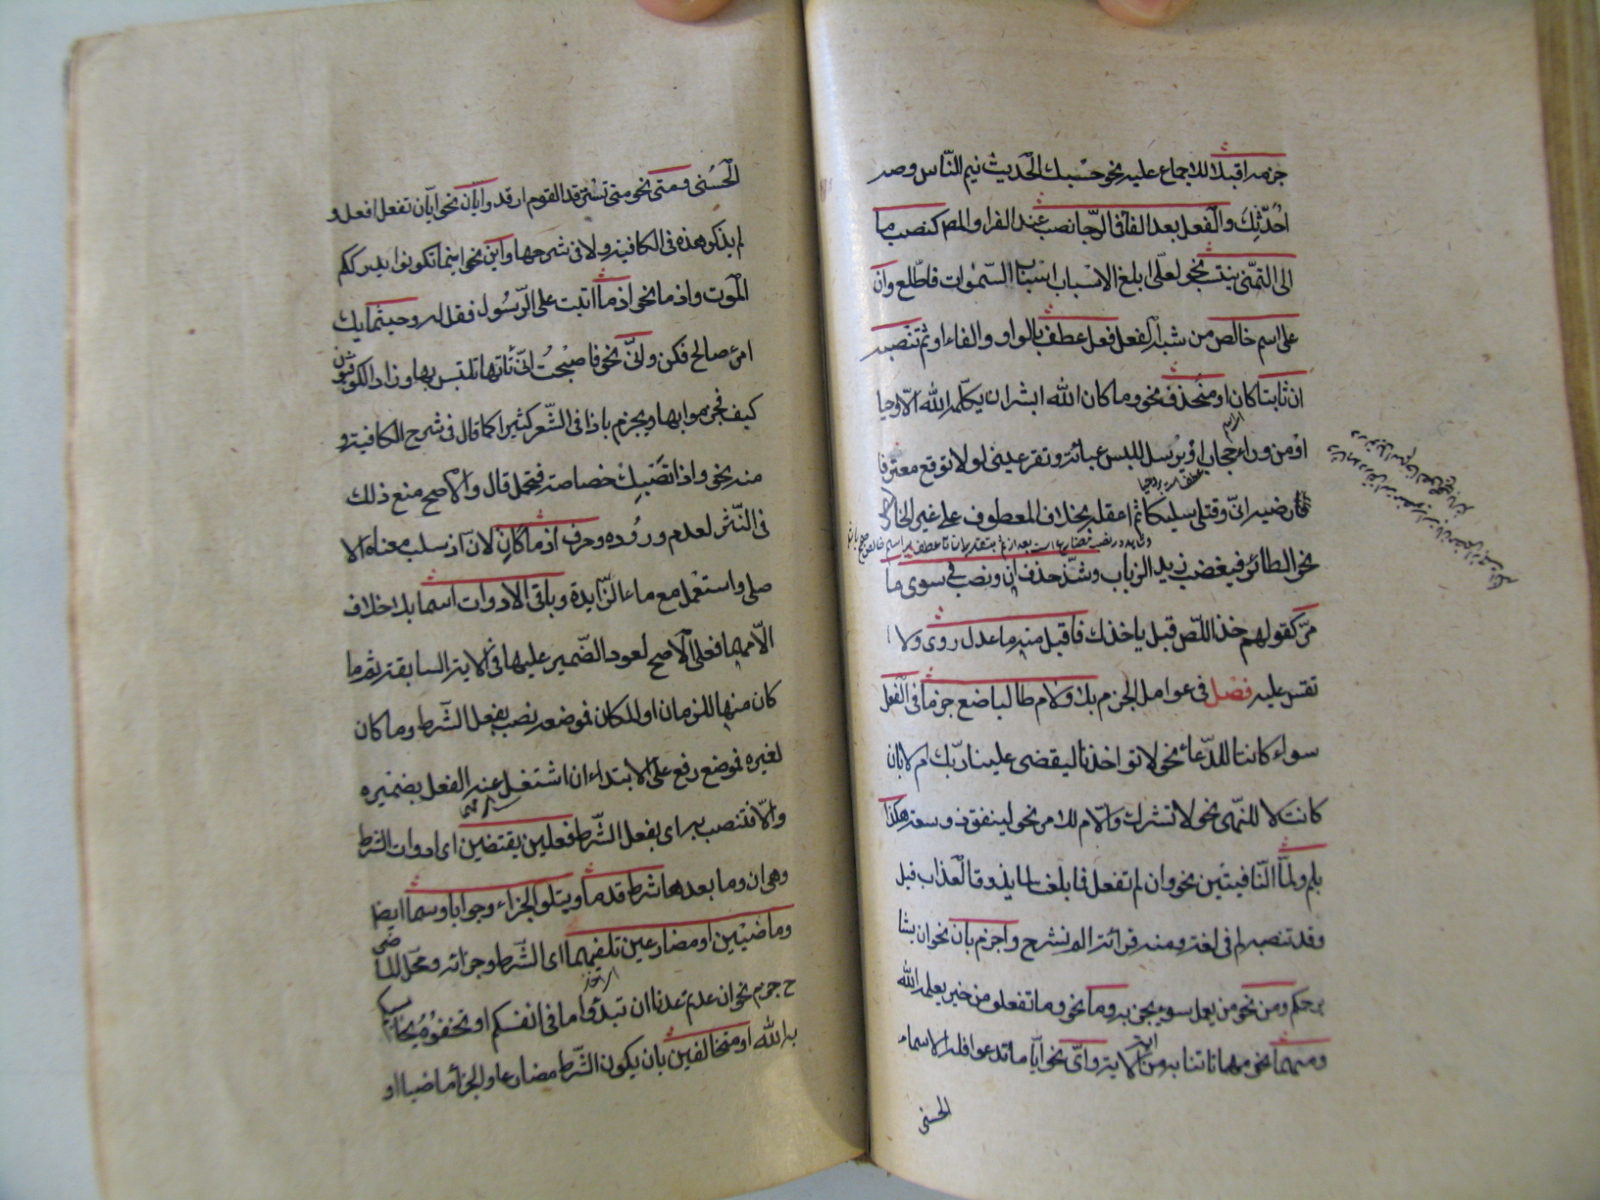 جزمه اقبلا للاجماع عليه نحو حسبك الحديث ينم النّاس وصه
احدّثك والفعل بعد الفاء فى الرّجا نصب عند الفراء والمص كنصب ما
الى التمنّى ينتسب نحو لعلّى ابلغ الاسباب اسباب السّموات فاطّلع وان
على اسم خالص من شبه الفعل فعل عطف بالواو والفاء او ثم تنصبه
ان ثابتا كان او منحذف نحو وما كان الله لبشر ان يكلّمه الله الّا وحيا
او من وراء حجاب او يرسل للبس عبائة وتقر عينى لولا توقع معتر فا
فارضيه انّى وقتلى سليكا ثم اعقله بخلاف المعطوف على غير الخالص
نحو الطائر فيغضب زيد الذباب وشذّ حذف ان ونصب فى سوى ما
مرّ كقولهم خذ اللّص قبل ياخذك فاقبل منه ما عدل روى ولا
تقس عليه فصل فى عوامل الجزم بلا ولام طالبا ضع جزما فى الفعل
سواء كانتا للدّعاء نحو لا تواخذنا ليقض علينا ربّك ام لا بان
كانت لا للنّهى نحو لا تشرك والّام للامر نحو لينفق ذو سعة هكذا
بلم ولمّا النّافيتين نحو وان لم تفعل فما بلغت لمّا يذوقوا العذاب قيل
وقد تنصب لم فى لغة ومنه قرائة الم نشرح واجزم بان نحو ان يشا
يرحمكم ومن نحو من يعمل سوء يجز به وما نحو وما تفعلوا من خير يعلمه الله
ومهما نحو مهما تاتنا به من اية الاية واىّ نحو ايّا ما تدعوا فله الاسماء
الحسنى
الحسنى ومتى نحو متى تسترفد القوم ارفد وايّان نحو ايّان تفعل افعل و
لم يذكر هذه فى الكافية ولا فى شرحها واين نحو اينما تكونوا يدرككم
الموت واذما نحو اذ ما اتيت على الرّسول فقل له وحيثما يك
امرء صالح فكن وانّى نحو فاصبحت انّى تأتها تلتبس بها وزاد الكوفيّون
كيف فجزموا بها ويجزم باذا فى الشّعر كثيرا كما قال فى شرح الكافية و
منه نحو واذا تصبك خصاصة فتجمل قال والاصح منع ذلك
فى النّثر لعدم وروده وحرف اذ ما كان لان اذ سلب معناه الا
صلى واستعمل مع ما الزّايدة وباقى الادوات اسما بلا خلاف
الّا مهما فعلى الاصح لعود الضّمير عليها فى الاية السابقة ثم ما
كان منها للزمان او المكان فموضعه نصب بفعل الشّرط وما كان
لغيره فموضع رفع على الابتداء ان اشتغل عنه الفعل بضميره
والّا فتنصب به اى بفعل الشّرط فعلين يقتضين اى ادوات الشرط
وهى ان وما بعدها شرط قدما ويتلو الجزاء وجوابا وسما ايضا
وماضيين او مضارعين تلفيهما اى الشّرط وجزائه ومحل الماضى
ح جزم نحو ان عدتم عدنا ان تبدوا ما فى انفسكم او تخفوه يحاسبكم
به الله او متخالفين بان يكون الشّرط مضارعا والجزاء ماضيا او